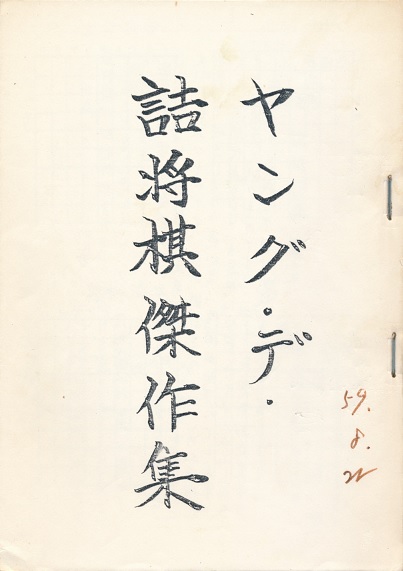 ヤング・デ・
詰将棋傑作集
59.
8.